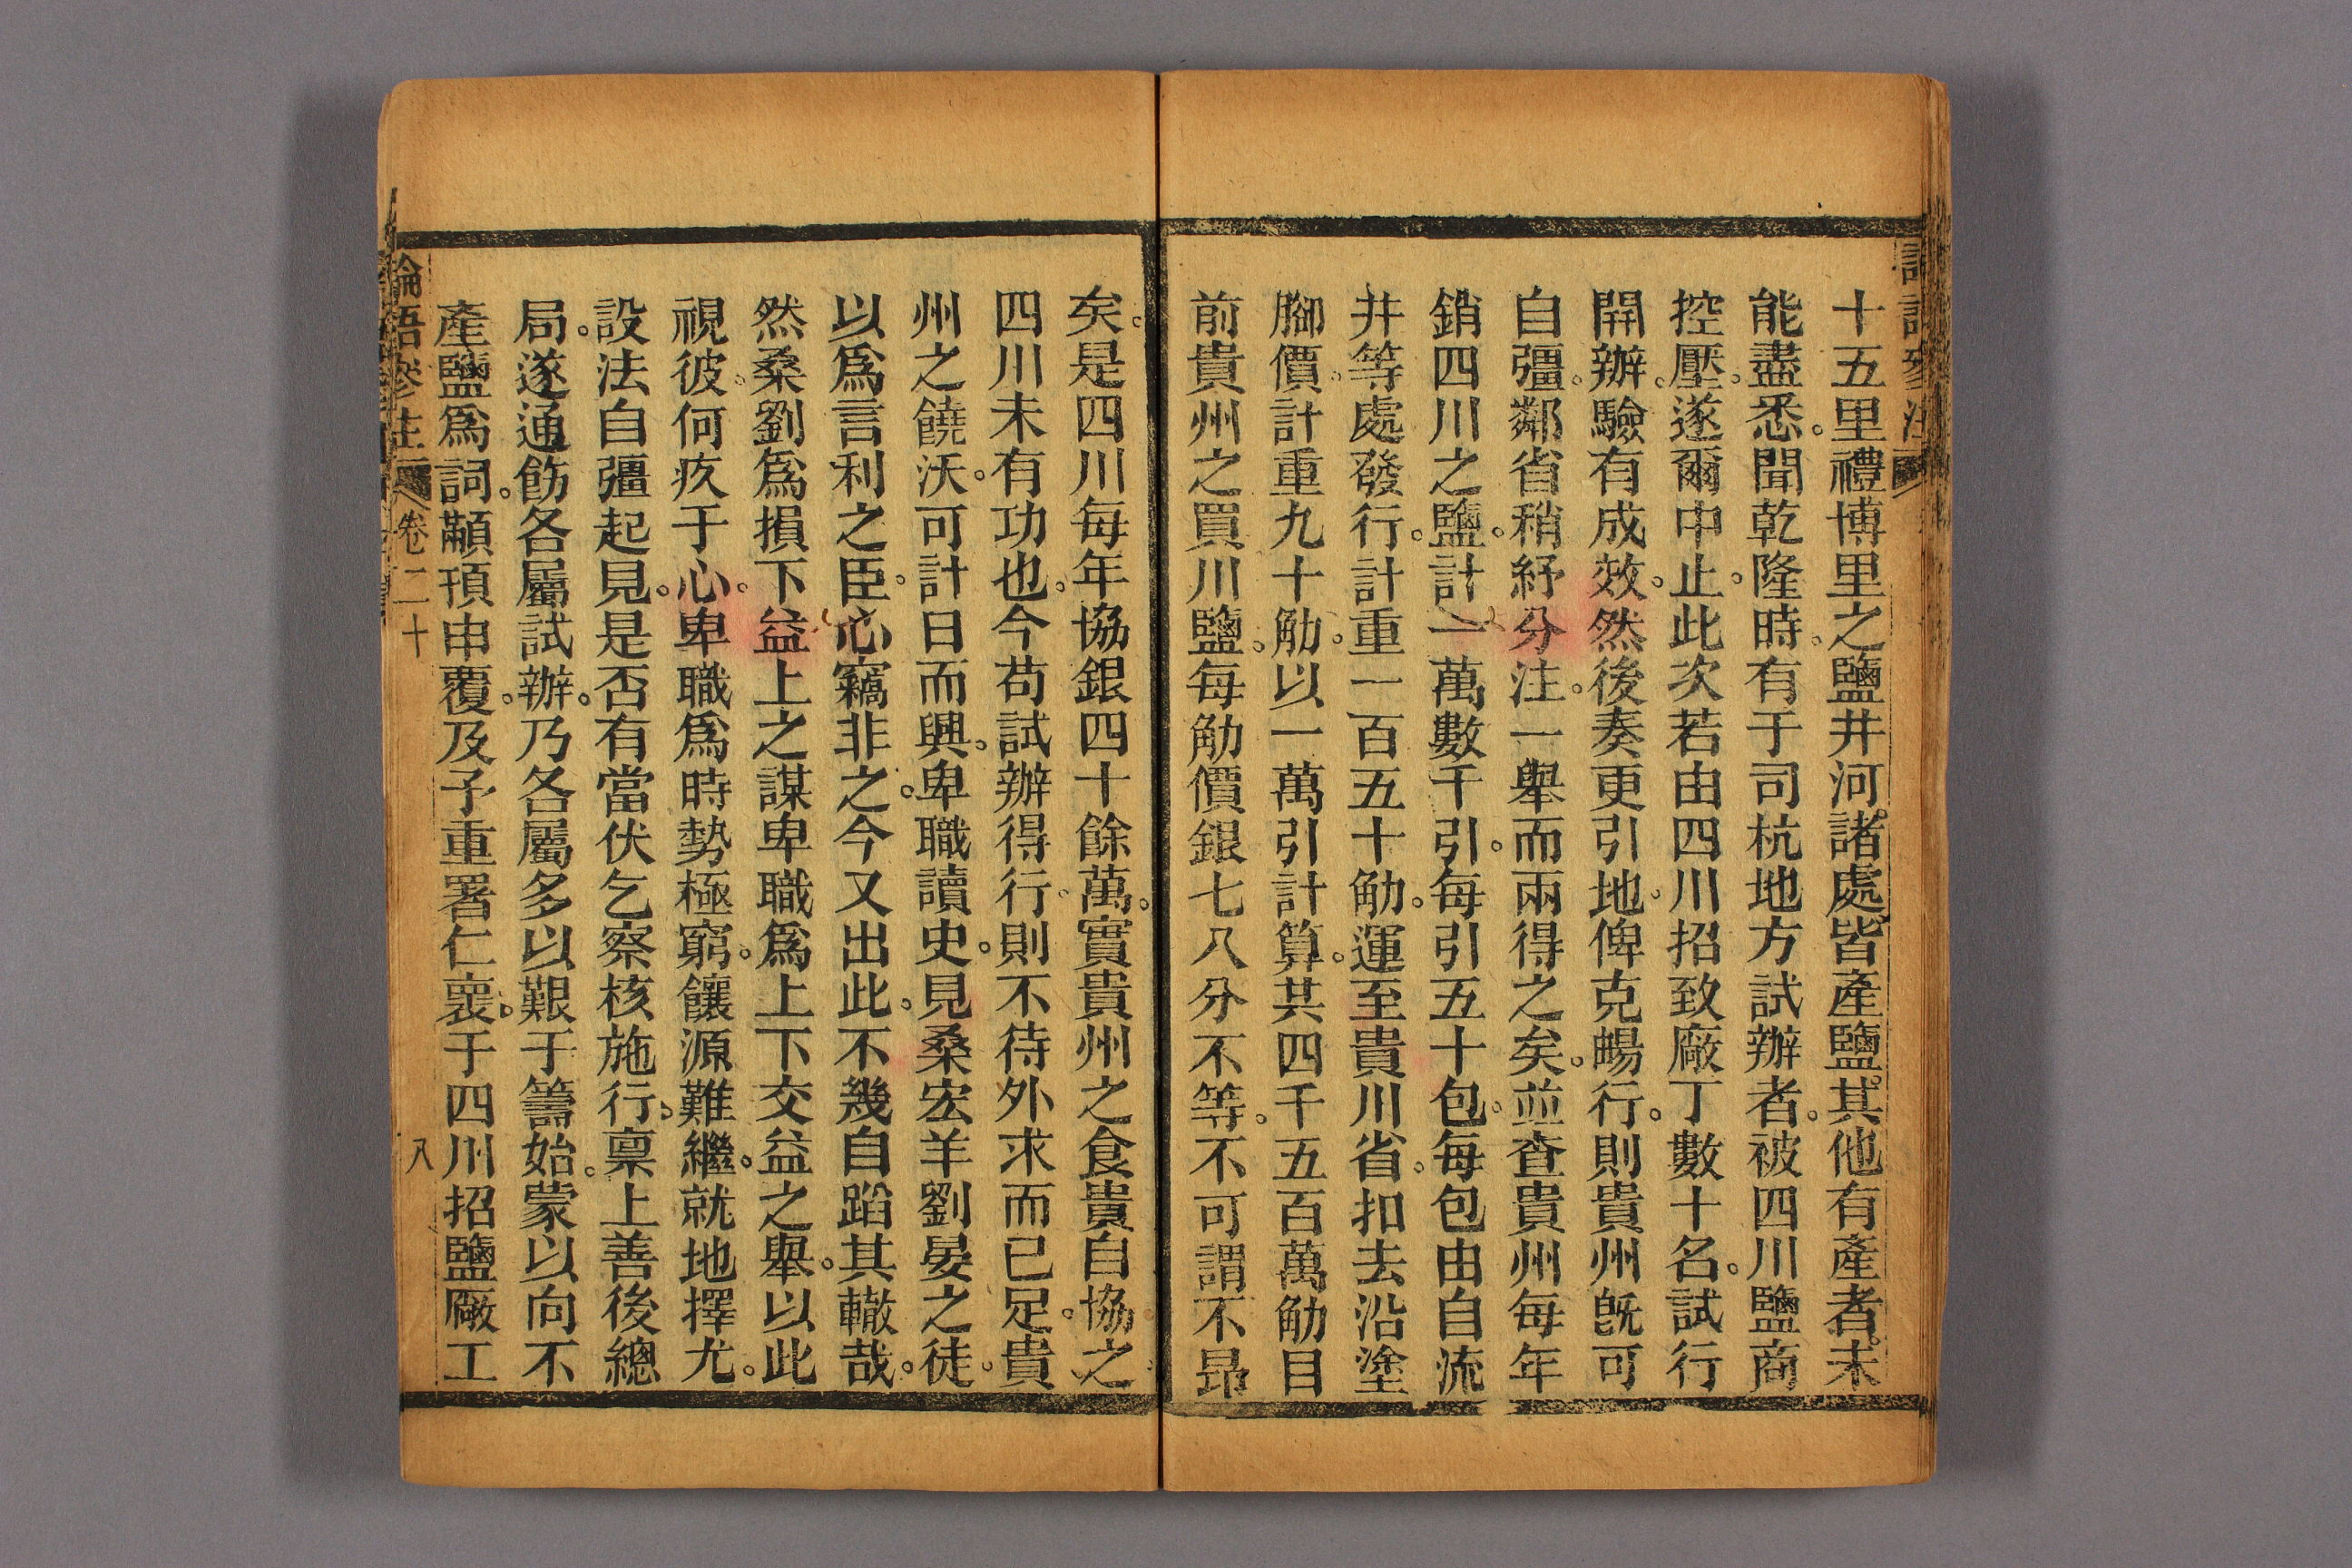 十五里禮博里之鹽井河。諸處皆產鹽。其他有產者。未
能盡悉。聞乾隆時。有于司杭地方試辦者。被四川鹽商
控壓。遂爾中止。此次若由四川招致廠丁數十名。試行
開辦。驗有成效。然後奏更引地。俾克暢行。則貴州旣可
自彊。鄰省稍紓分注。一舉而兩得之矣。並查貴州每年
銷四川之鹽。計一萬數千引。每引五十包。每包由自流
井等處發行。計重一百五十觔。運至貴川省。扣去沿塗
腳價。計重九十觔。以一萬引計算。其四千五百萬觔目
前貴州之買川鹽。每觔價銀七八分不等。不可謂不昂
矣。是四川每年協銀四十餘萬。實貴州之食貴自協之
四川未有功也。今苟試辦得行。則不待外求而已足。貴
州之饒沃。可計日而興。卑職讀史。見桑宏羊劉晏之徒。
以爲言利之臣。心竊非之。今又出此。不幾自蹈其轍哉。
然桑劉爲損下益上之謀卑職爲上下交益之舉。以此
視彼。何疚于心。卑職爲時勢極窮。饟源難繼。就地擇尤。
設法自彊起見。是否有當伏乞察核施行。稟上善後總
局。遂通飭各屬試辦。乃各屬多以艱于籌始。蒙以向不
產鹽爲詞。顢頇申覆。及予重署仁褱。于四川招鹽廠工
論語參注 卷二十 八